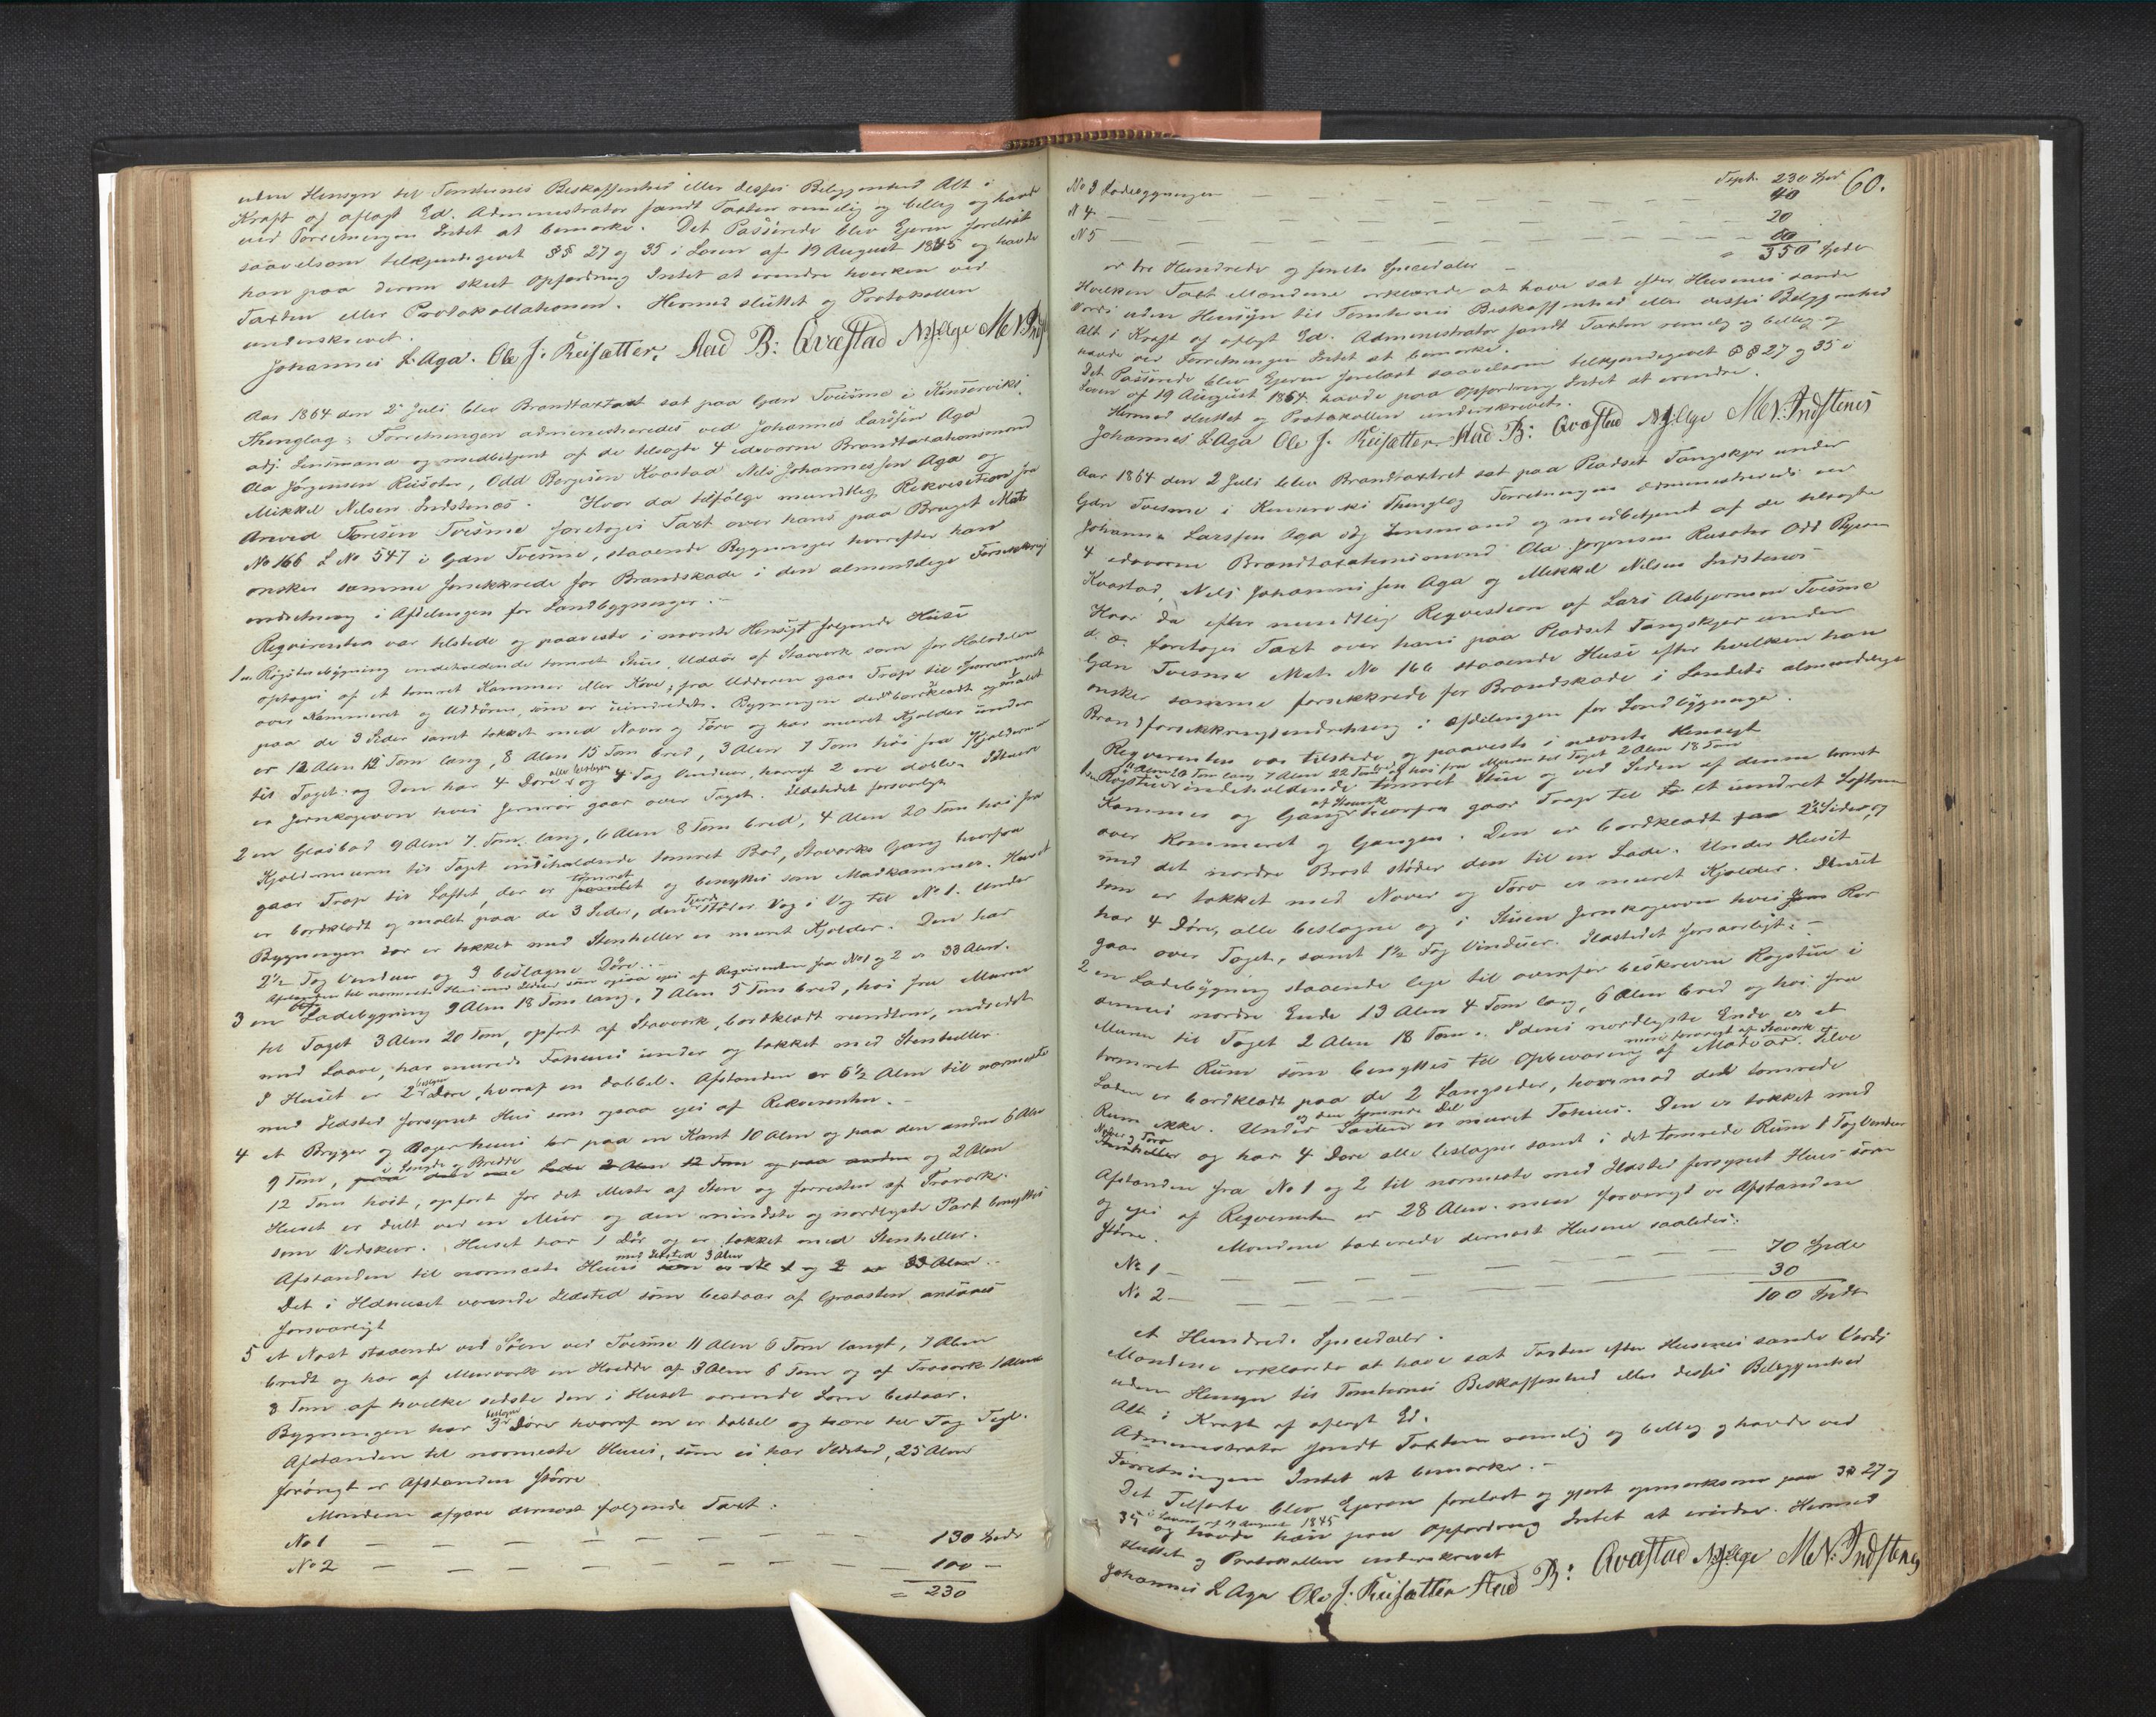 uden Hensyn til Tomternes Beskaffenhed eller desses Beliggenhed Alt i
Kraft af aflagt Ed. Administrator fandt Taxten rimelig og billig og havde
ved Forretningen Intet at bemærke. Det Passerede blev Ejeren forelæst
saavelsom tilkjendegivet §§ 27 og 35 i Loven af 19 August 1845 og havde
han paa derom skeet Opfordring Intet at erindre hverken ved
Taxten eller Protokollationen. Hermed sluttet og Protokollen
underskrevet.
Johannes L. Aga. Ole J. Reisæter, Aad B: Qvæstad N J: Age M N. Inds
Aar 1864 den 2 Juli blev Brandtaxtast sat paa Gdn Tveisme i Kinserviks
Thinglag; Forretningen administreredes ved Johannes Larssen Aga
adj. Lensmand og medbetjent af de tilsagte 4 edsvorne Brandtaxationsmænd
Ola Jørgensen Reisæter, Odd Bergesen Kvæstad Nils Johannessen Aga og
Mikkel Nilsen Indstenæs. Hvor da tilfølge mundtlig Rekvisition fra
Arnved Toresen Tveisme foretoges Taxt over hans paa Bruget Mat
No 166 L No 547 i Gdn Tveisme, staaende Bygninger hvorefter han
ønsker samme forsikkrede for Brandskade i den almindelige Forsikkrings
indretning i Afdelingen for Landbygninger.
Reqvirenten var tilstede og paaviste i nævnte Hensigt følgende Huse
1 en Røgstuebygning indeholdende tømret Stue, Uddør af Stavverk som for Halvdelen
optages af et tømret Kammer eller Kove; fra Uddøren gaar Trap til Jerrommet
over Kammeret og Uddøren, som er uindredet. Bygningen der bordklædt og malet
paa de 3 Sider samt tækket med Næver og Torv og har muret Kjelder under
er 12 Alen 12 Tom lang, 8 Alen 15 Tom bred, 3 Alen 7 Tom høi fra Kjeldermuren
til Taget: og Den har 4 Døre alle beslagne og 4 Fag Vinduer, hvoraf 2 ere doble. I Stuen
er Jernkogeovn hvis Jernrør gaar over Taget. Ildstedet forsvarligt
2 en Glasbod 9 Alen 7 Tom. lang, 6 Alen 8 Tom bred, 4 Alen 20 Tom høi fra
Kjeldermuren til Taget indeholdende tømret Bod, Stavverks Gang hvorfra
gaar Trap til Loftet, der er tømret og benyttes som Madkammer. Huset
er bordklædt og malet paa de 3 Sider, den fjerde støder Væg i Væg til No 1. Under
Bygningen der er tækket med Stenheller er muret Kjelder. Den har
2½ Fag Vinduer og 3 beslagne Døre.
Afstanden til nærmeste Huus med Ildsted som ogsaa eies af Reqvirenten fra No 1 og 2 er 33 Alen.
3 en Ladebygning 9 Alen 18 Tom lang, 7 Alen 5 Tom bred, høi fra Muren
til Taget 3 Alen 20 Tom, opført af Stavverk, bordklædt rundtom, indredet
med Laave, har murede Fæhuus under og tækket med Stenheller.
I Huset er 2 beslagne Døre, hvoraf en dobbel. Afstanden er 6½ Alen til nærmeste
med Ildsted forsynet Huus som ogsaa eies af Rekvirenten.
4 et Brygger og Bagerhuus er paa en Kant 10 Alen og paa den anden 6 Alen
9 Tom, i Længde og Bredde og 2 Alen
12 Tom høit, opført for det Meste af Sten og forresten af Træverk.
Huset er delt ved en Muur og den mindste og nordligste Part benyttes
som Vedskuur. Huset har 1 Dør og er tækket med Stenheller.
Afstanden til nærmeste Huus med Ildsted 3 Alen
Det i Ildhuset værende Ildsted som bestaar af Graasten ansaaes
forsvarligt
5 et Nøst staaende ved Søen ved Tveisme 11 Alen 6 Tom langt, 7 Alen
bredt og har af Muurverk en Høide af 3 Alen 6 Tom og af Træverk 1 Alen
8 Tom af hvilke sidste den i Huset værende Lem bestaar.
Bygningen har 3 beslagne Døre hvoraf en er dobbel og tækket til Tag Tegl.
Afstanden til nærmeste Huus, som ei har Ildsted, 25 Alen
forøvrigt er Afstanden større
Mændene afgave dernæst følgende Taxt:
No 1 — 130 Spdr
No 2 — 100 —
= 230
60.
Tspt. 230 Spd
No 3 Ladebygningen — 40
N 4 — 20
N 5 — 60
= 350 Spdr
er tre Hundrede og femti Speciedaler
Hvilken Taxt Mændene erklærede at have sat efter Husenes sande
Værdi uden Hensyn til Tomternes Beskaffenhed eller desses Beliggenhed
Alt i Kraft af aflagt Ed. Administrator fandt Taxten rimelig og billig og
havde ved Forretningen Intet at bemærke.
Det Passerede blev Ejeren forelæst saavelsom tilkjendegivet §§ 27 og 35 i
Loven af 19 August 1864 havde paa Opfordring Intet at erindre.
Hermed sluttet og Protokollen underskrevet.
Johannes L Aga Ole J. Reisæter Aad B: Qvæstad N J: Age M N: Indstenes
Aar 1864 den 2 Juli blev Brandtaxtret sat paa Pladset Tangskjer under
Gdn Tveisme i Kinserviks Thinglag Forretningen administreredes ved
Johannes Larssen Aga adj Lensmand og medbetjent af de tilsagte
4 edsvorne Brandtaxationsmænd Ola Jørgensen Reisæter Odd Bergesen
Kvæstad, Nils Johannessen Aga og Mikkel Nilsen Indstenæs
Hvor da efter mundtlig Reqvisition af Lars Asbjørnsen Tveisme
d. æ. foretoges Taxt over hans paa Pladset Tangskjer under
Gdn Tveisme Mat. No 166 staaende Huse efter hvilken han
ønsker samme forsikkrede for Brandskade i Landets almindelige
Brandforsikkringsindretning i Afdelingen for Landbygninger.
Reqvirenten var tilstede og paaviste i nævnte Hensigt
11 Alen 20 Tom lang 7 Alen 22 Tom bred og høi fra Muren til Taget 2 Alen 18 Tom
1 en Røgstue indeholdende tømret Stue og ved Siden af denne tømret
Kammer og Gang af Stavverk hvorfra gaar Trap til et uindret Loftrum
over Kammeret og Gangen. Den er bordklædt 2 Sider, og
med det nordre Brøst støder den til en Lade. Under Huset
som er tækket med Næver og Torv er muret Kjelder. Huset
har 4 Døre, alle beslagne og i Stuen Jernkogeovn hvis Rør
gaar over Taget, samt 1½ Fag Vinduer. Ildstedet forsvarligt.
2 en Ladebygning staaende lige til ovenfor beskrevne Røgstue i
dennes nordre Ende 13 Alen 4 Tom lang, 6 Alen bred og høi fra
Muren til Taget 2 Alen 18 Tom. I dens nordligste Ende er et
tømret Rum som benyttes til Opbevaring af Madvar. men forøvrigt af Stavverk Selve
Laden er bordklædt paa de 2 Langsider, hvorimod det tømrede
Rum ikke. Under Laden og den tømrede Del er muret Fæhuus. Den er tækket med
Næver og Torv og har 4 Døre alle beslagne samt i det tømrede Rum 1 Fag Vinduer
Afstanden fra No 1 og 2 til nærmeste med Ildsted forsynet Huus som
og eies af Reqvirenten er 28 Alen. men forøvrigt er Afstanden
større. Mændene taxerede dernæst Husene saaledes:
No 1 — 70 Spdr
No 2 — 30
100 Spdr
et Hundrede Speciedaler.
Mændene erklærede at have sat Taxten efter Husenes sande Værdi
uden Hensyn til Tomternes Beskaffenhed eller desses Beliggenhed
Alt i Kraft af aflagt Ed.
Administrator fandt Taxten rimelig og billig og havde ved
Forretningen Intet at bemærke.
Det Tilførte blev Ejeren forelæst og gjort opmærksom paa §§ 27 og
35 i Loven af 19 August 1845 og havde han paa Opfordring Intet at erindre. Hermed
sluttet og Protokollen underskrevet
Johannes L Aga Ole J. Reisæter Aad B: Qvæstad N J: Age M N: Indstenes